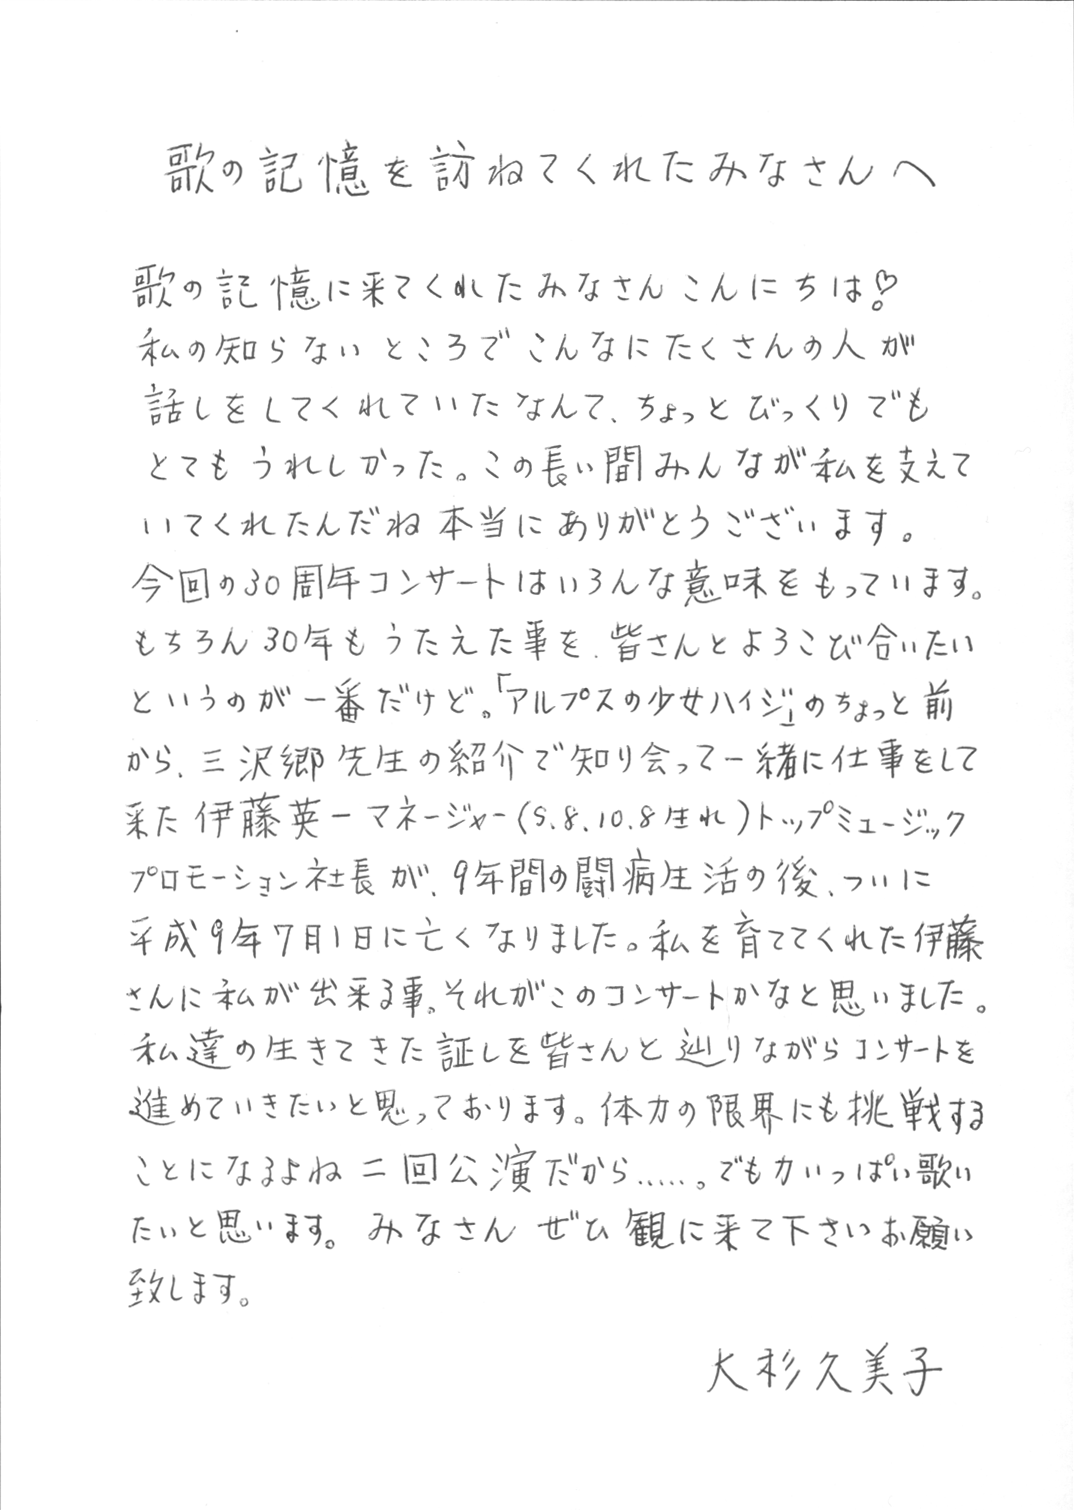 歌の記憶を訪ねてくれたみなさんへ
歌の記憶に来てくれたみなさんこんにちは♡
私の知らないところでこんなにたくさんの人が
話しをしてくれていたなんて、ちょっとびっくりでも
とてもうれしかった。この長い間みんなが私を支えて
いてくれたんだね本当にありがとうございます。
今回の30周年コンサートはいろんな意味をもっています。
もちろん30年もうたえた事を、皆さんとよろこび合いたい
というのが一番だけど。「アルプスの少女ハイジ」のちょっと前
から、三沢郷先生の紹介で知り会って一緒に仕事をして
来た伊藤英一マネージャー(S.8.10.8生れ)トップミュージック
プロモーション社長が、9年間の闘病生活の後、ついに
平成9年7月1日に亡くなりました。私を育ててくれた伊藤
さんに私が出来る事。それがこのコンサートかなと思いました。
私達の生きてきた証しを皆さんと辿りながらコンサートを
進めていきたいと思っております。体力の限界にも挑戦する
ことになるよね二回公演だから.....。でも力いっぱい歌い
たいと思います。みなさんぜひ観に来て下さいお願い
致します。
大杉久美子